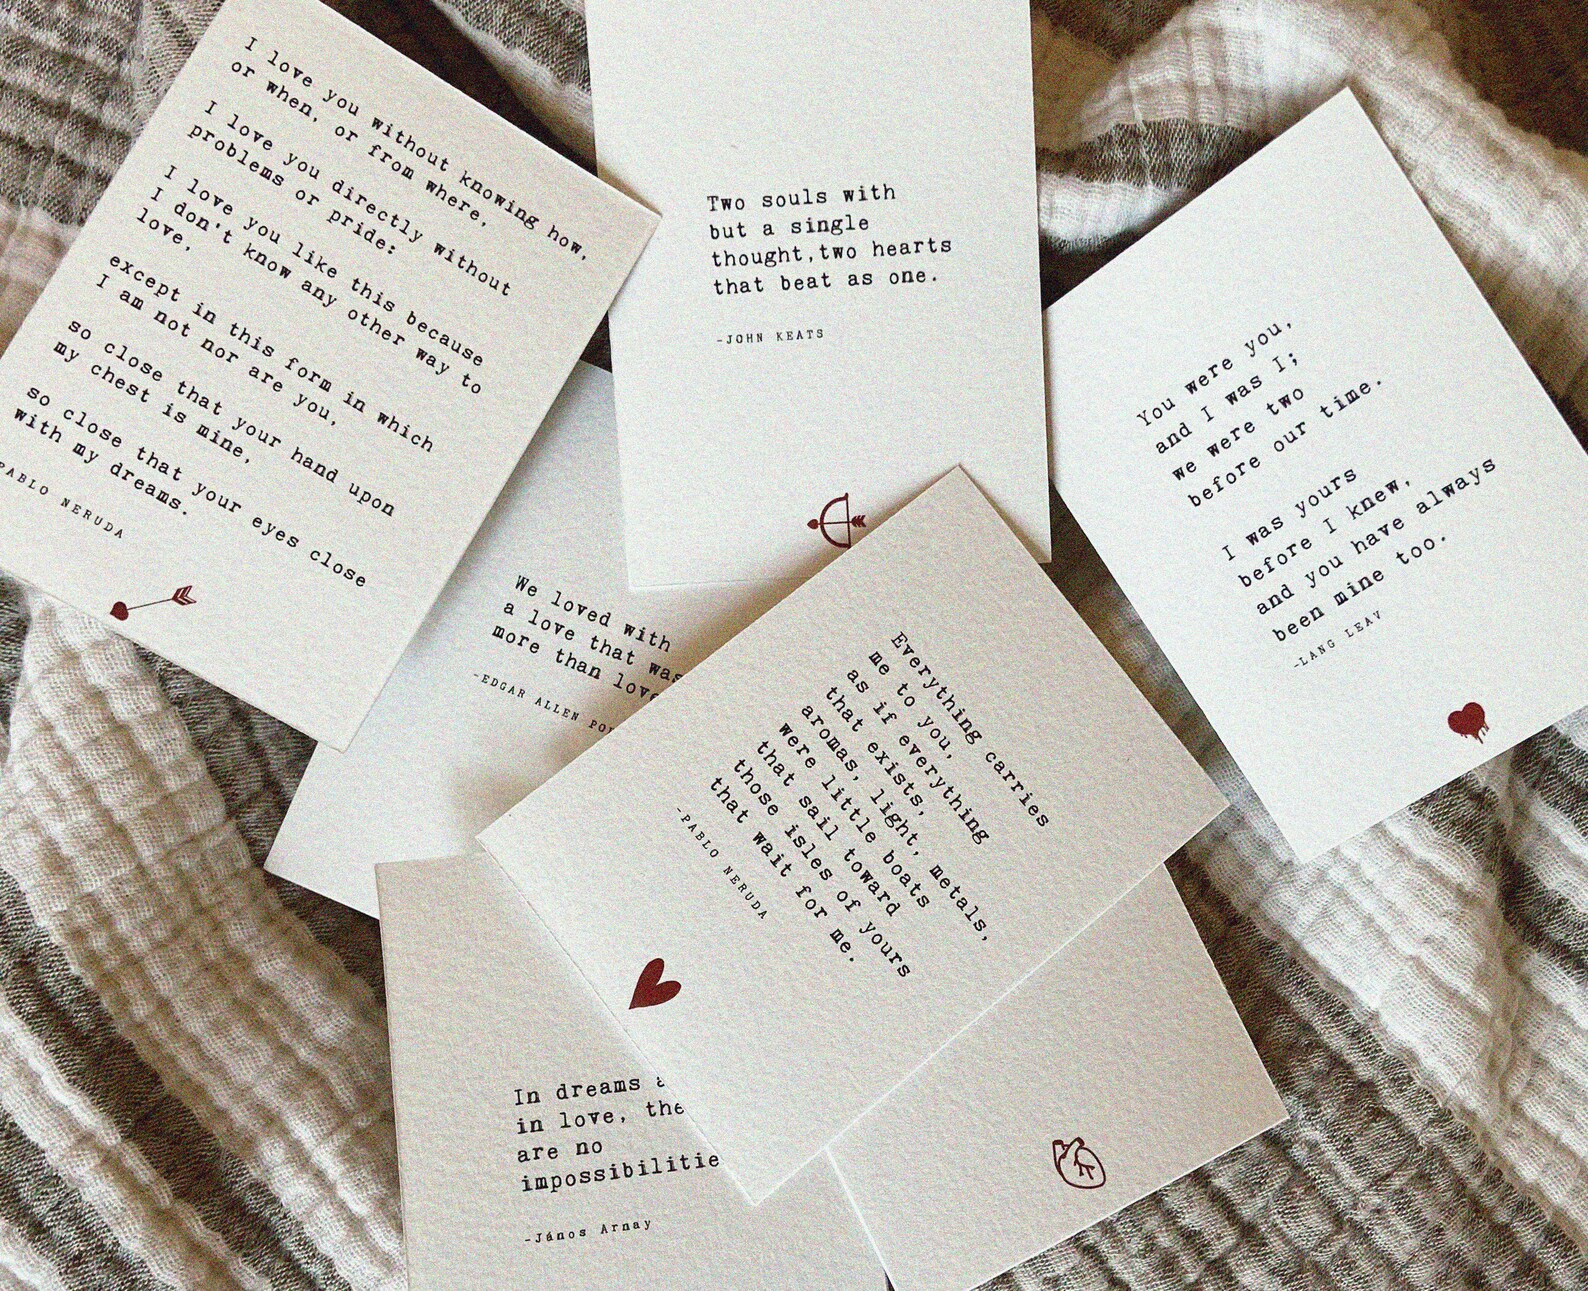 I love you without knowing how,
or when, or from where,
I love you directly without
problems or pride:
I love you like this because
I don't know any other way to
love,
except in this form in which
I am not nor are you,
so close that your hand upon
my chest is mine,
so close that your eyes close
with my dreams.
PABLO NERUDA
Two souls with
but a single
thought,two hearts
that beat as one.
-JOHN KEATS
You were you,
and I was I;
we were two
before our time.
I was yours
before I knew,
and you have always
been mine too.
-LANG LEAV
We loved with
a love that was
more than love
-EDGAR ALLEN POE
Everything carries
me to you,
as if everything
that exists,
aromas, light, metals,
were little boats
that sail toward
those isles of yours
that wait for me.
-PABLO NERUDA
In dreams
in love, the
are no
impossibilitie
-János Arnay